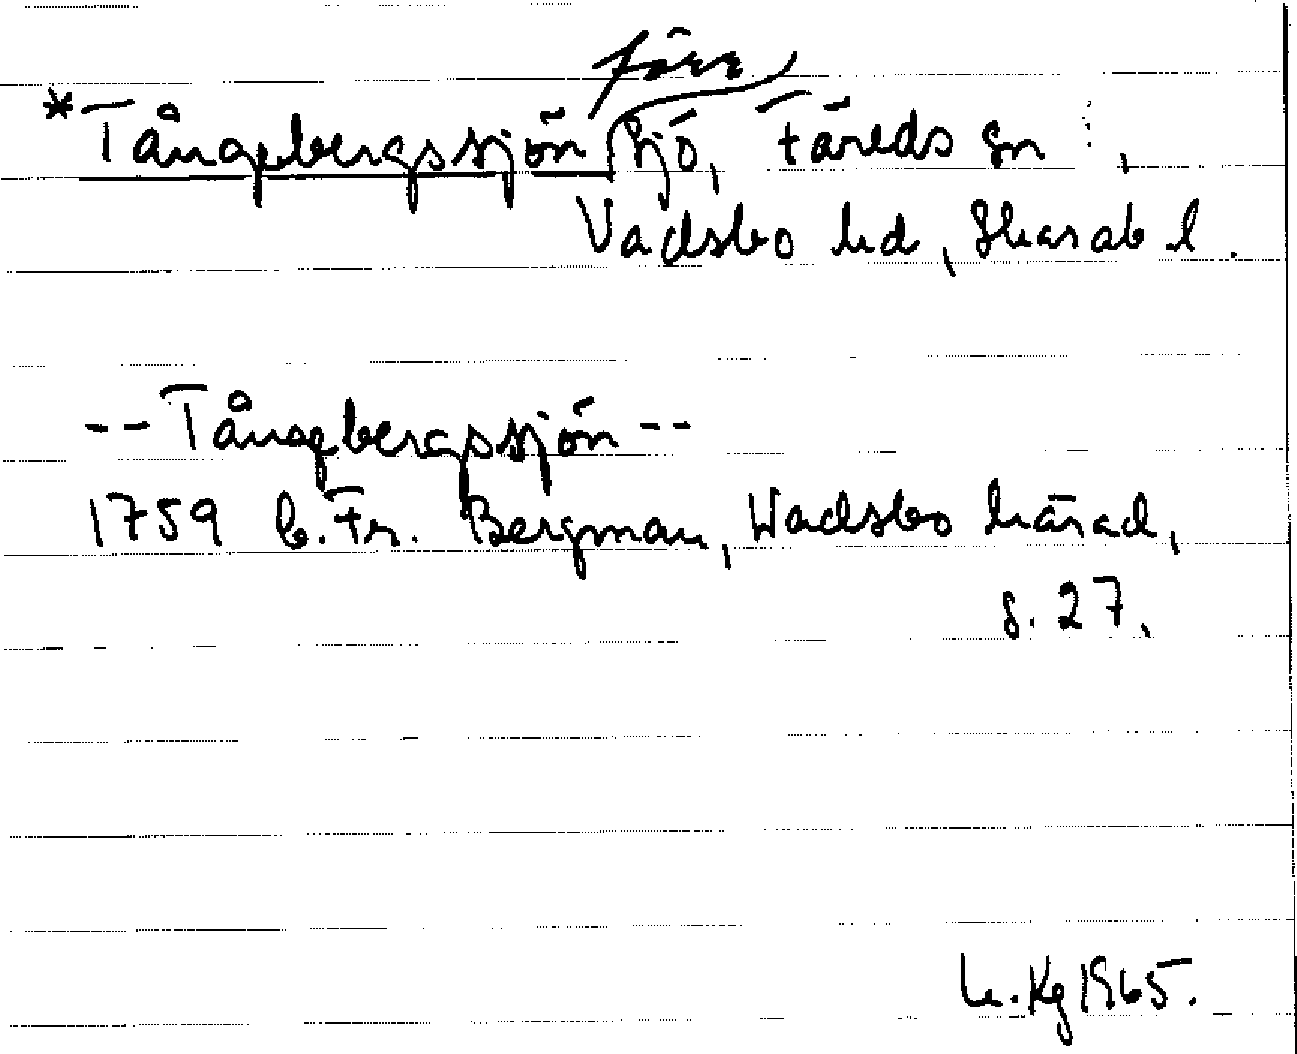 förr
*Tångebergssjön sjö, Färeds sn,
Vadsbo hd, Skarab l.
-- Tångebergssjön --
1759 C. Fr. Bergman, Wadsbo härad,
s. 27.
Kg 1965.